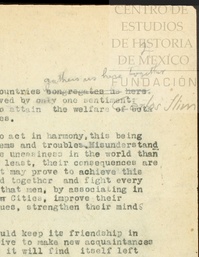 CENTRO DE
ESTUDIOS
DE HISTORIA
DE MÉXICO
FUNDACIÓN
gathers us here together
ountries congregates us here.
wed by only one sentiment
o attain the welfare of both
es.
o act in harmony, this being
ems and troubles. Misunderstand
e uneasiness in the world than
least, their consequences are
t may prove to achieve this
d together and fight every
that men, by associating in
w Cities, improve their
ues, strengthen their mind
uld keep its friendship in
ive to make new acquaintances
it will find itself left